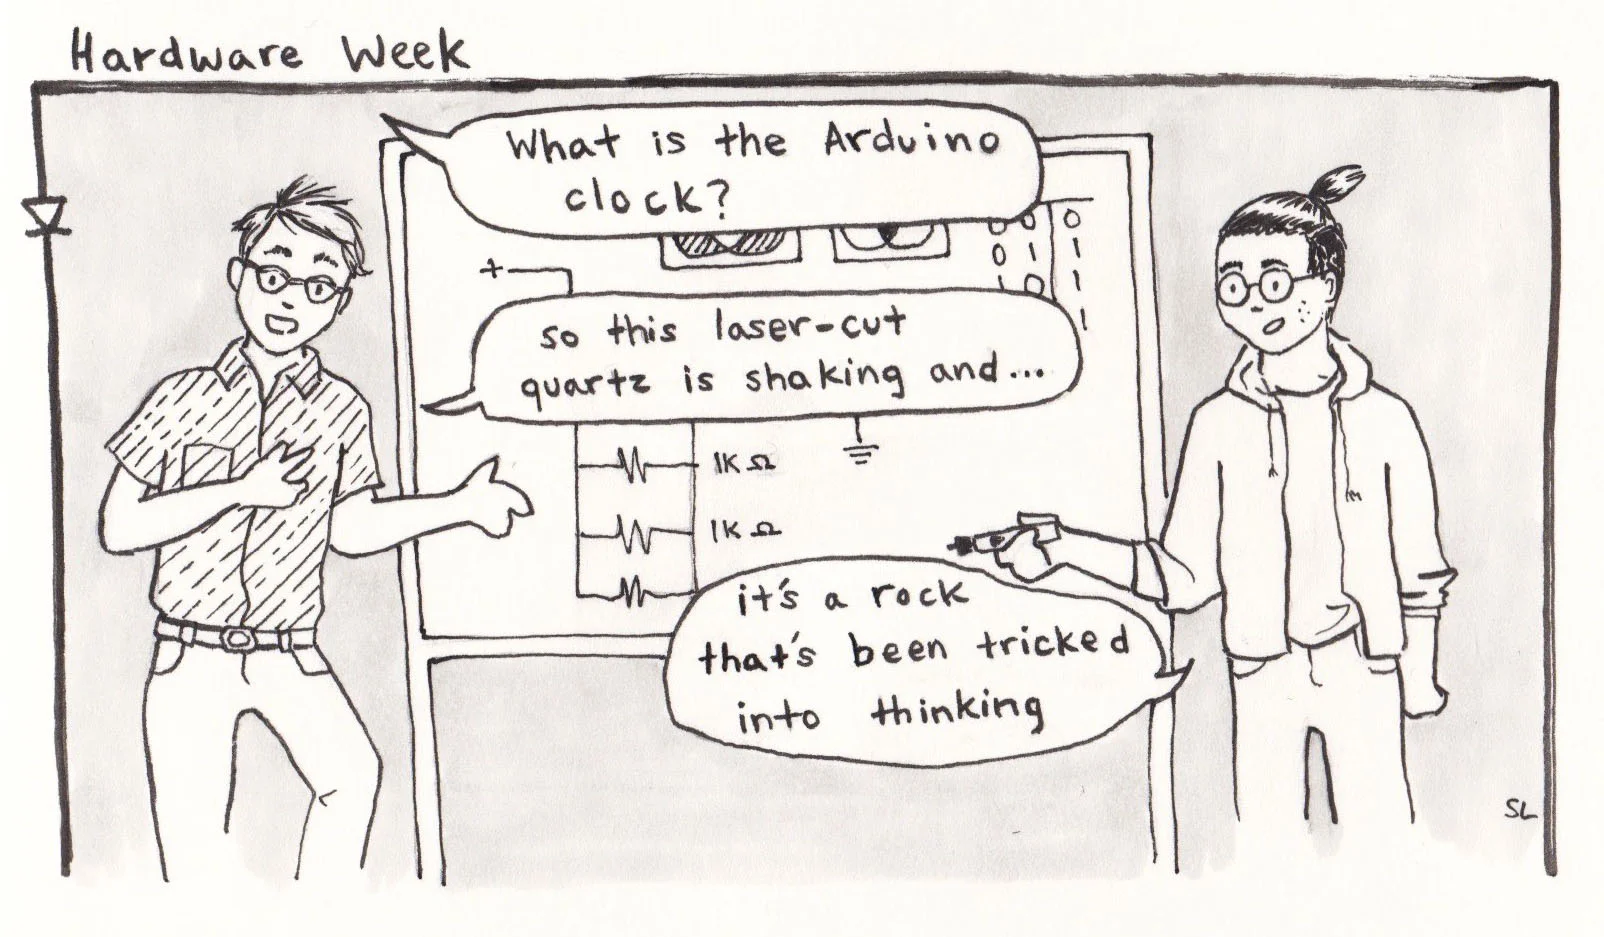 Hardware Week
What is the Arduino
clock?
+
so this laser-cut
quartz is shaking and...
1K Ω
1K Ω
it's a rock
that's been tricked
into thinking
SL